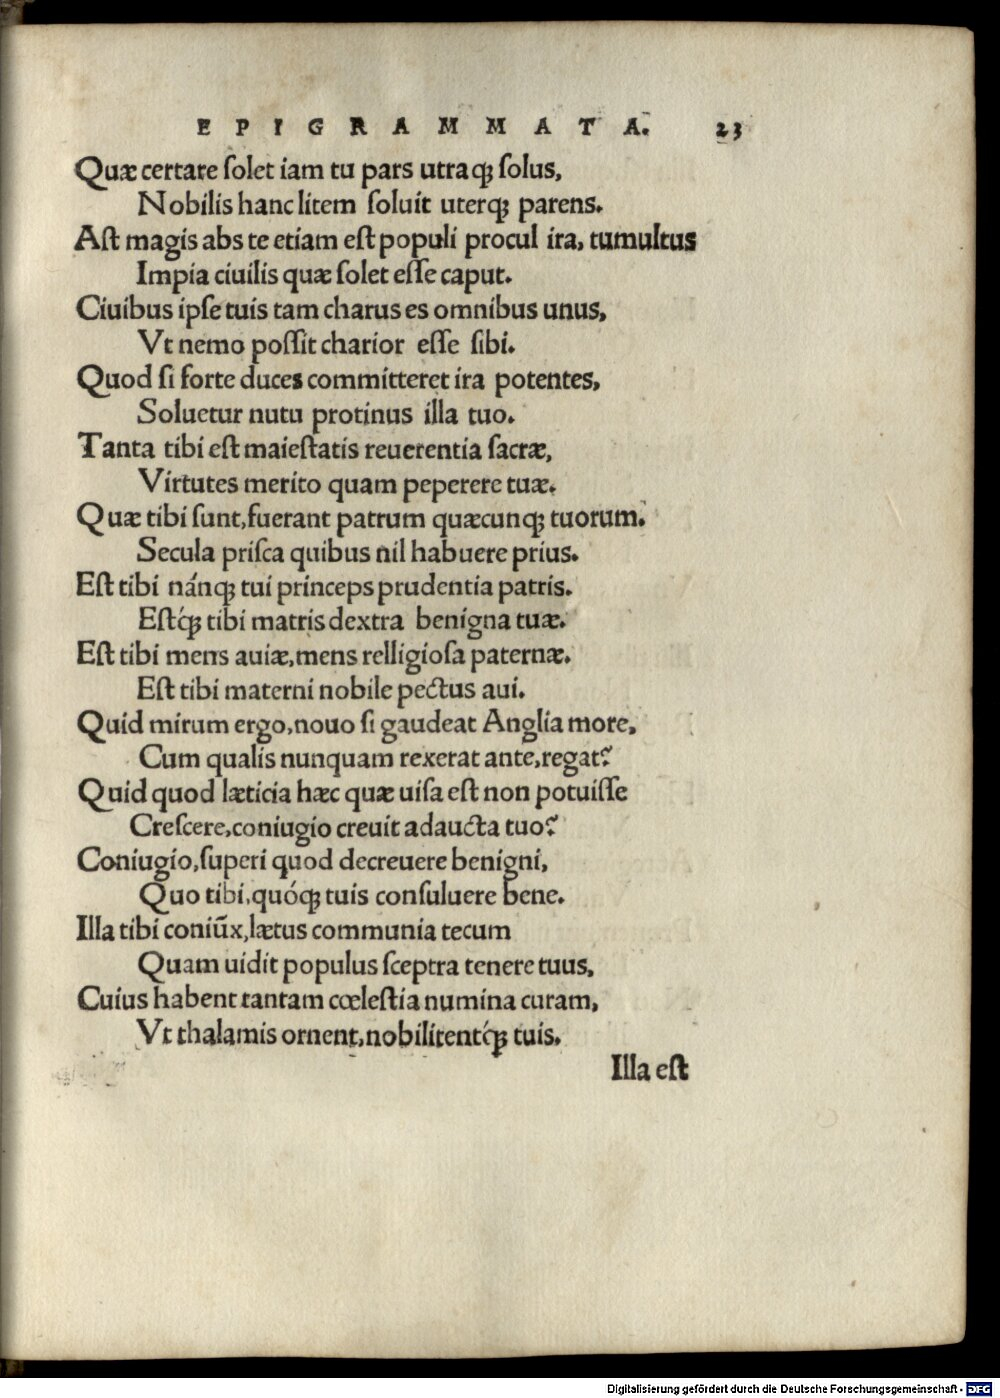 EPIGRAMMATA. 23
Quæ certare ſolet iam tu pars utraqꝫ ſolus,
Nobilis hanc litem ſoluit uterqꝫ parens.
Aſt magis abs te etiam eſt populi procul ira, tumultus
Impia ciuilis quæ ſolet eſſe caput.
Ciuibus ipſe tuis tam charus es omnibus unus,
Vt nemo poſſit charior eſſe ſibi.
Quod ſi forte duces committeret ira potentes,
Soluetur nutu protinus illa tuo.
Tanta tibi eſt maieſtatis reuerentia ſacræ,
Virtutes merito quam peperere tuæ.
Quæ tibi ſunt, fuerant patrum quæcunqꝫ tuorum.
Secula priſca quibus nil habuere prius.
Eſt tibi nánqꝫ tui princeps prudentia patris.
Eſtq́ꝫ tibi matris dextra benigna tuæ.
Eſt tibi mens auiæ, mens relligioſa paternæ.
Eſt tibi materni nobile pectus aui.
Quid mirum ergo, nouo ſi gaudeat Anglia more,
Cum qualis nunquam rexerat ante, regat?
Quid quod læticia hæc quæ uiſa eſt non potuiſſe
Creſcere, coniugio creuit adaucta tuo?
Coniugio, ſuperi quod decreuere benigni,
Quo tibi, quóqꝫ tuis conſuluere bene.
Illa tibi coniũx, lætus communia tecum
Quam uidit populus ſceptra tenere tuus,
Cuius habent tantam cœleſtia numina curam,
Vt thalamis ornent, nobilitentq́ꝫ tuis.
Illa eſt
Digitalisierung gefördert durch die Deutsche Forschungsgemeinschaft - DFG